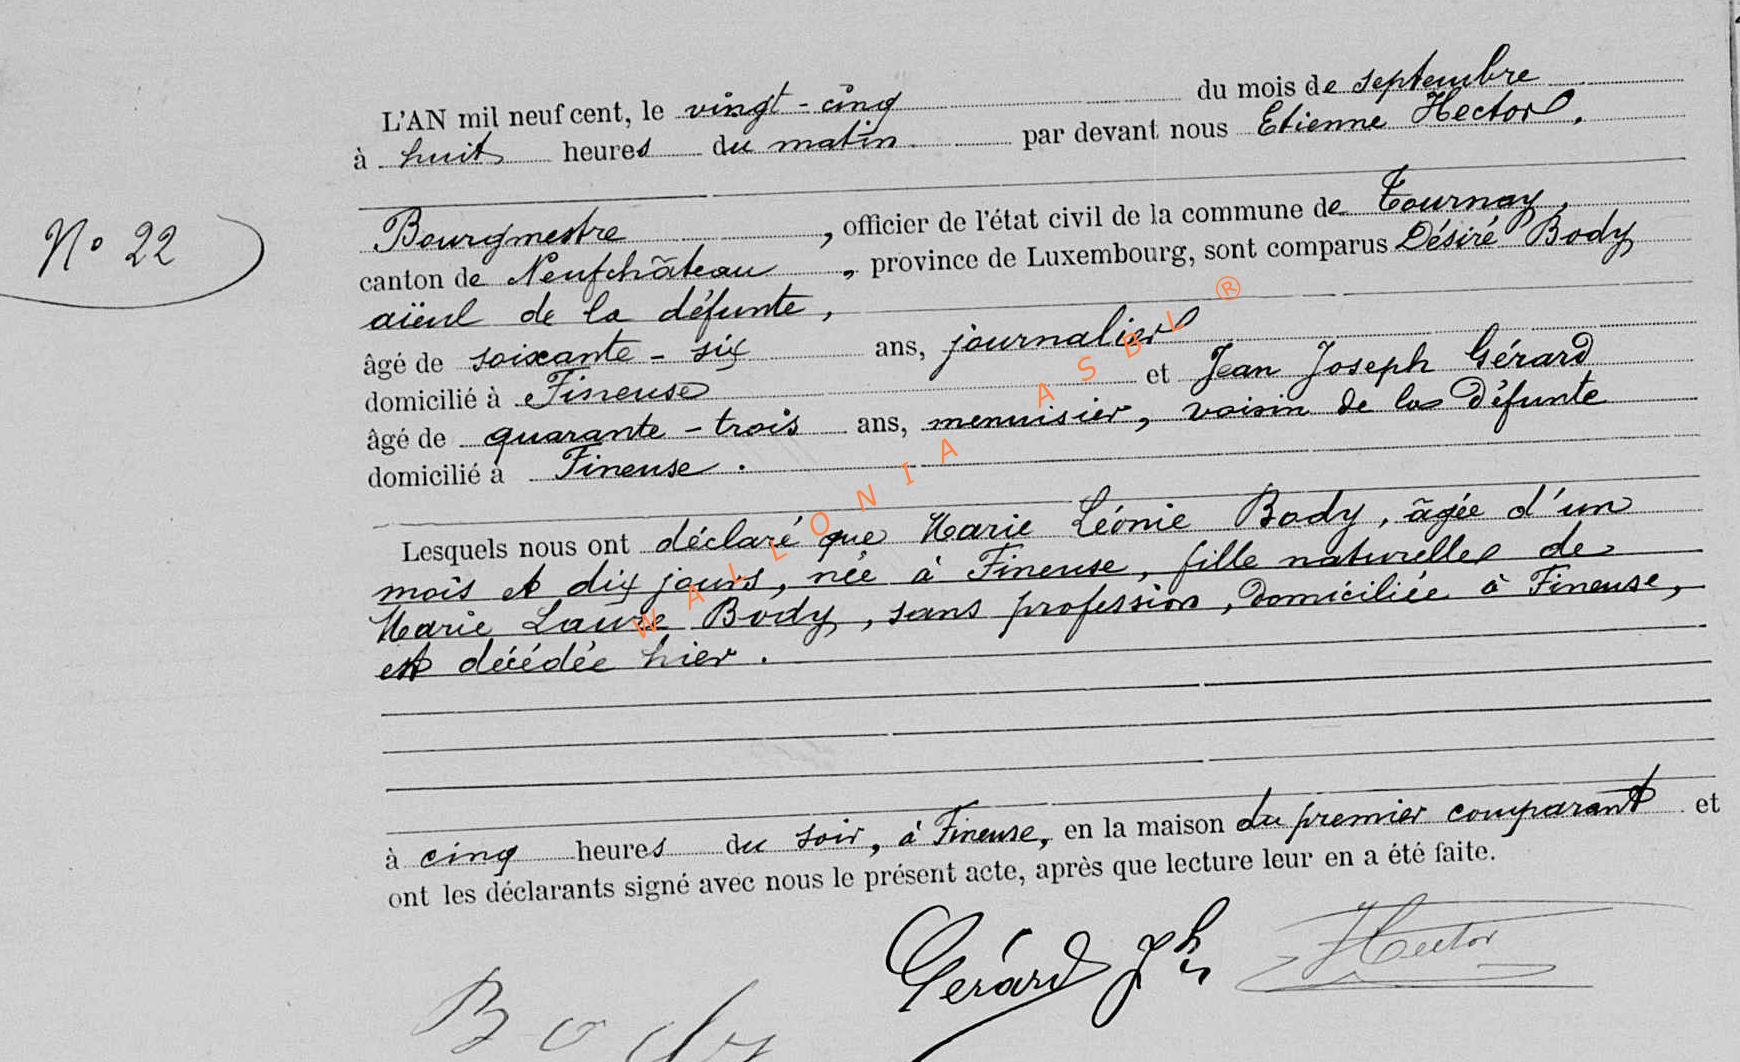 L'AN mil neuf cent, le vingt-cinq du mois de septembre
à huit heures du matin par devant nous Etienne Hector,
Bourgmestre, officier de l'état civil de la commune de Tournay,
N° 22
canton de Neufchâteau, province de Luxembourg, sont comparus Désiré Body
aïeul de la défunte,
âgé de soixante-six ans, journalier
domicilié à Fineuse et Jean Joseph Gérard
âgé de quarante-trois ans, menuisier, voisin de la défunte
domicilié à Fineuse.
Lesquels nous ont déclaré que Marie Léonie Body, âgée d'un
mois et dix jours, née à Fineuse, fille naturelle de
Marie Laure Body, sans profession, domiciliée à Fineuse,
est décédée hier.
à cinq heures du soir, à Fineuse, en la maison du premier comparant et
ont les déclarants signé avec nous le présent acte, après que lecture leur en a été faite.
Gérard Jh Hector
Body
WALLONIA ASBL ®